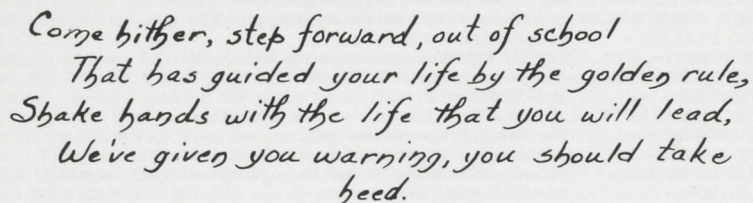 Come hither, step forward, out of school
That has guided your life by the golden rule,
Shake hands with the life that you will lead,
We've given you warning, you should take
heed.